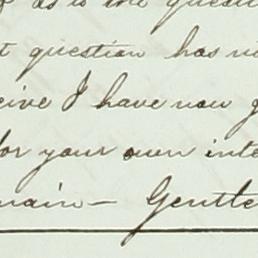 as to the question
question has
I have now
for your own inte
main — Gentle